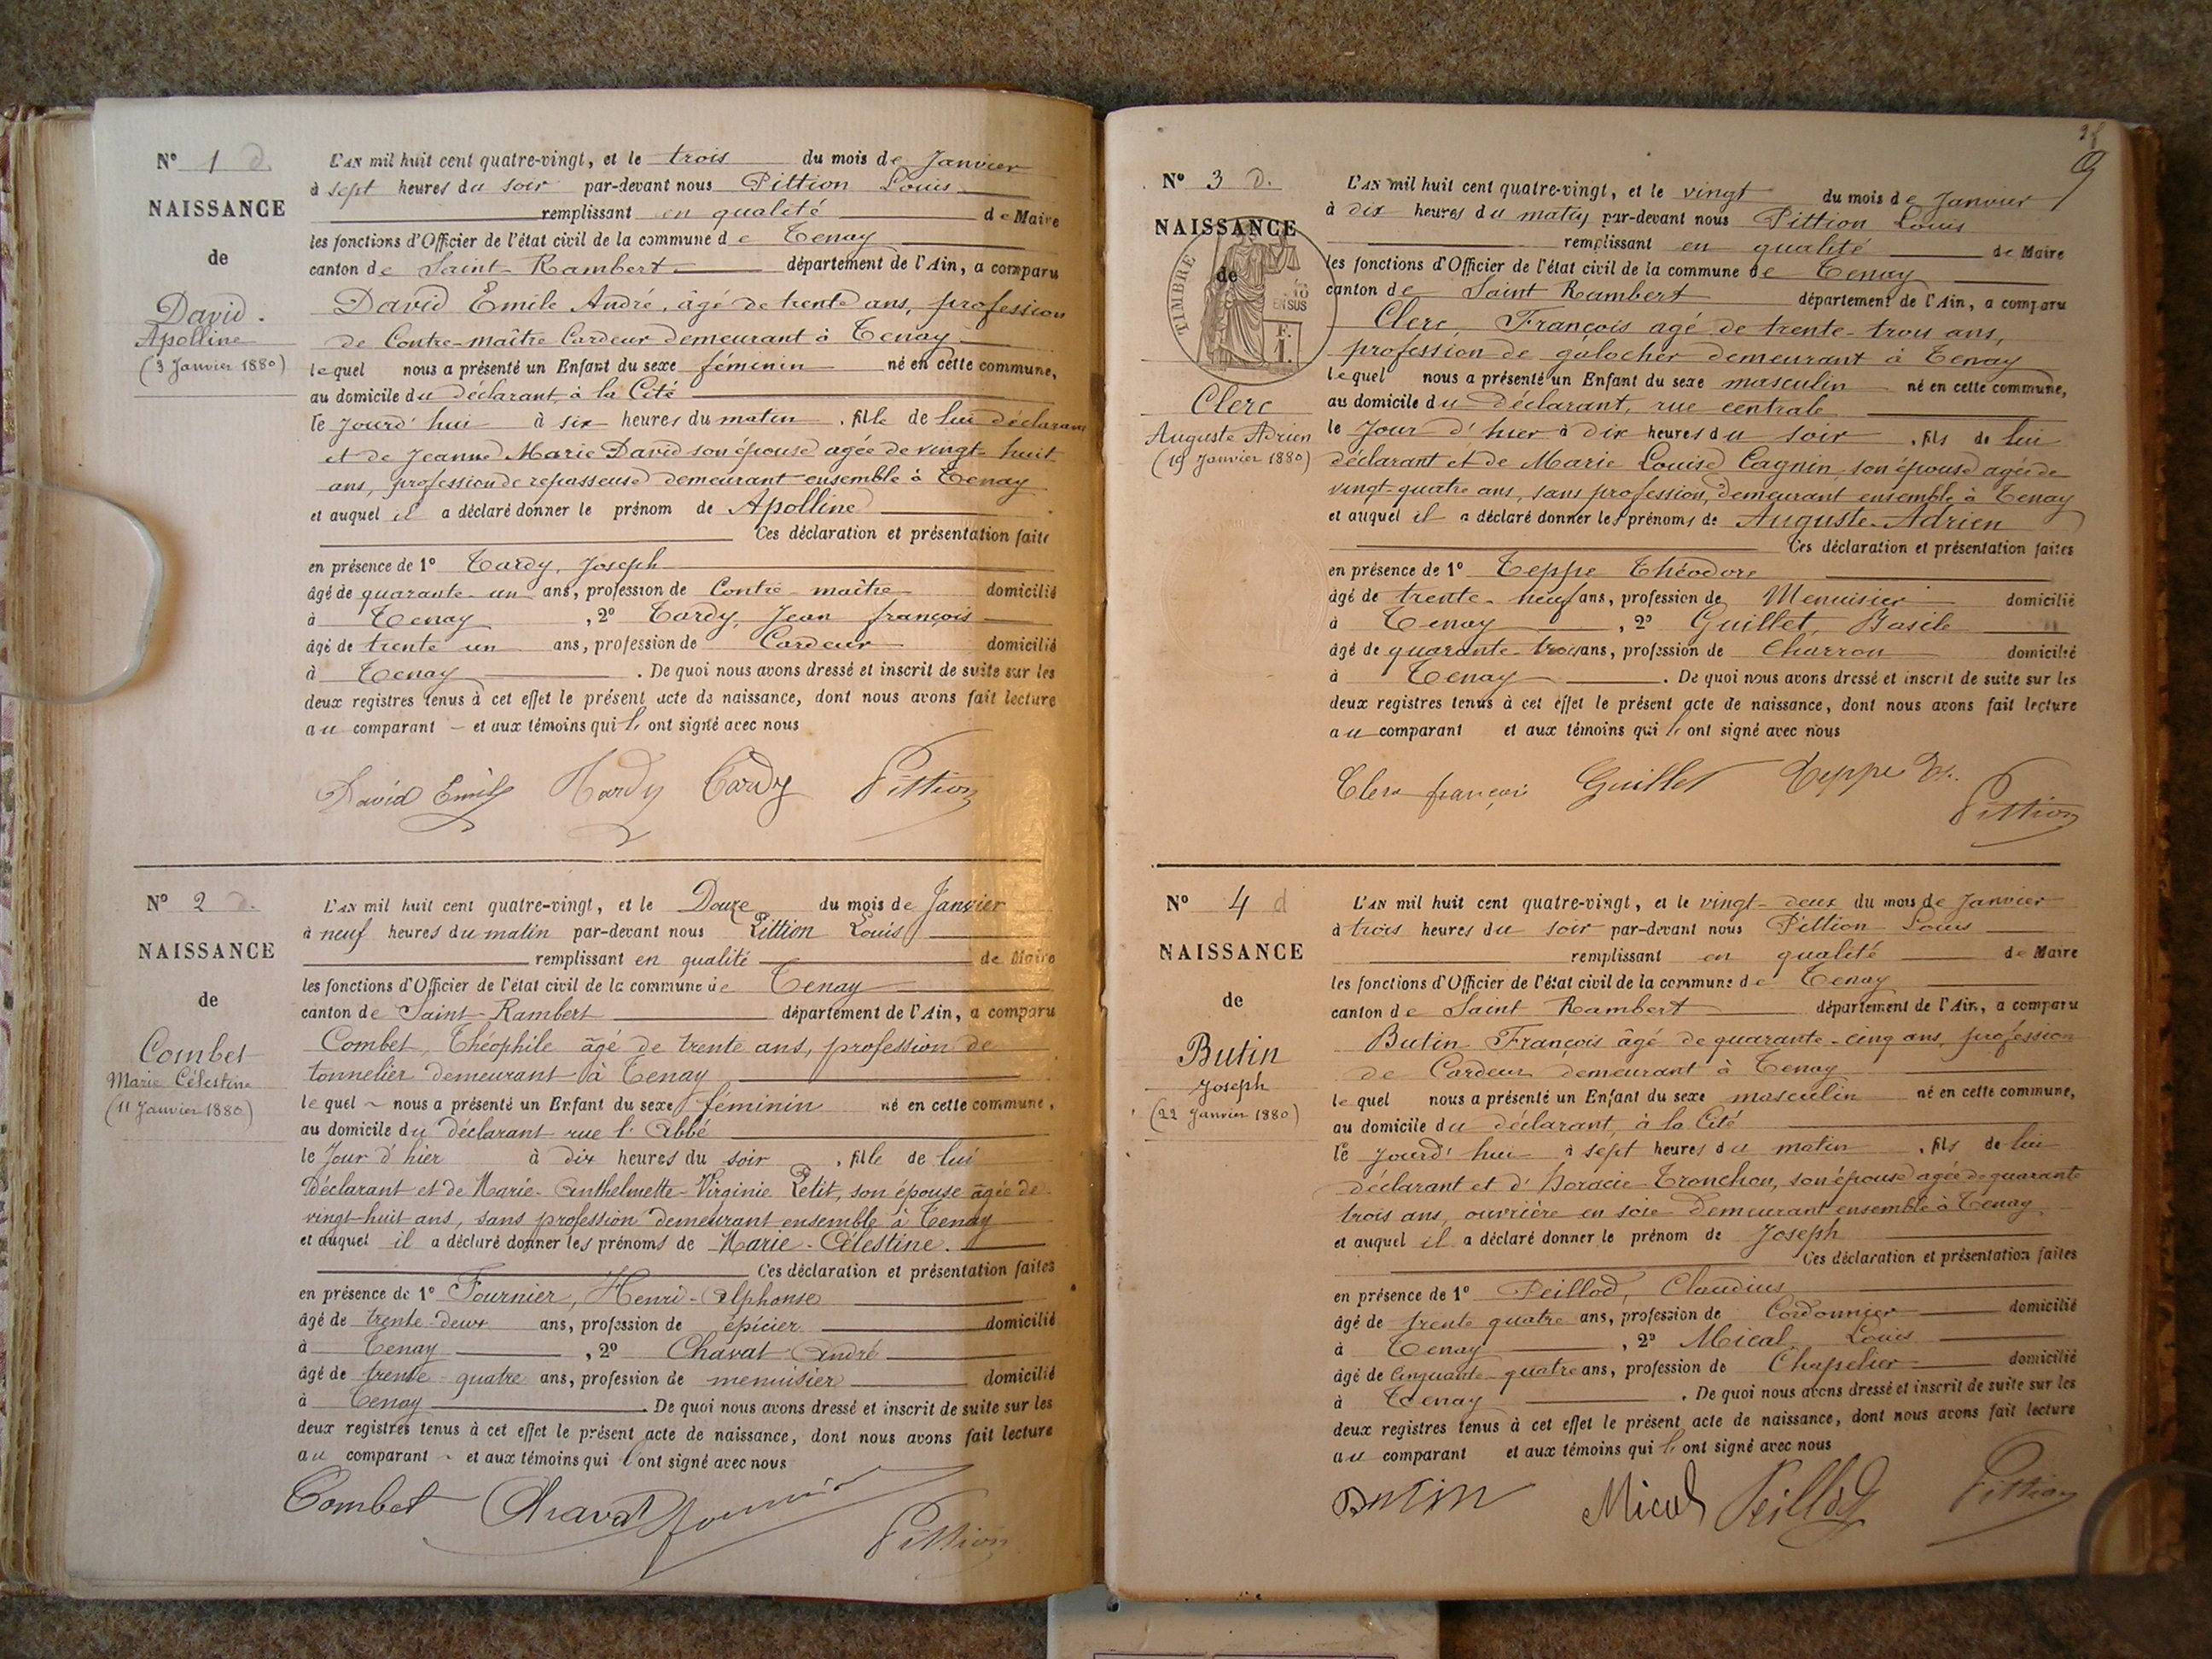 N° 1 d.
NAISSANCE
de
David
Apolline
(3 Janvier 1880)
L'AN mil huit cent quatre-vingt, et le trois du mois de Janvier
à sept heures du soir par-devant nous Pittion Louis
remplissant en qualité de Maire
les fonctions d'Officier de l'état civil de la commune de Tenay
canton de Saint-Rambert département de l'Ain, a comparu
David Emile André, âgé de trente ans, profession
de Contre-maître Cardeur demeurant à Tenay
lequel nous a présenté un Enfant du sexe féminin né en cette commune,
au domicile du déclarant, à la Cité
le jourd'hui à six heures du matin, fille de lui déclarant
et de Jeanne Marie David son épouse agée de vingt-huit
ans, profession de repasseuse demeurant ensemble à Tenay
et auquel il a déclaré donner le prénom de Apolline
Ces déclaration et présentation faites
en présence de 1° Tardy, Joseph
âgé de quarante-un ans, profession de Contre-maître domicilié
à Tenay, 2° Tardy, Jean françois
âgé de trente un ans, profession de Cardeur domicilié
à Tenay. De quoi nous avons dressé et inscrit de suite sur les
deux registres tenus à cet effet le présent acte de naissance, dont nous avons fait lecture
au comparant et aux témoins qui l'ont signé avec nous
David Emile Tardy Tardy Pittion
N° 2 d.
NAISSANCE
de
Combet
Marie Célestine
(11 Janvier 1880)
L'AN mil huit cent quatre-vingt, et le Douze du mois de Janvier
à neuf heures du matin par-devant nous Pittion Louis
remplissant en qualité de Maire
les fonctions d'Officier de l'état civil de la commune de Tenay
canton de Saint-Rambert département de l'Ain, a comparu
Combet, Théophile âgé de trente ans, profession de
tonnelier demeurant à Tenay
lequel nous a présenté un Enfant du sexe féminin né en cette commune,
au domicile du déclarant rue l'Abbé
le Jour d'hier à dix heures du soir, fille de lui
Déclarant et de Marie-Anthelmette-Virginie Petit, son épouse âgée de
vingt-huit ans, sans profession demeurant ensemble à Tenay
et auquel il a déclaré donner les prénoms de Marie-Célestine.
Ces déclaration et présentation faites
en présence de 1° Fournier, Henri-Alphonse
âgé de trente-deux ans, profession de épicier domicilié
à Tenay, 2° Chavat André
âgé de trente-quatre ans, profession de menuisier domicilié
à Tenay. De quoi nous avons dressé et inscrit de suite sur les
deux registres tenus à cet effet le présent acte de naissance, dont nous avons fait lecture
au comparant et aux témoins qui l'ont signé avec nous
Combet Chavat fournier
Pittion
9
N° 3 d.
NAISSANCE
de
TIMBRE
EN SUS
Clerc
Auguste Adrien
(19 Janvier 1880)
L'AN mil huit cent quatre-vingt, et le vingt du mois de Janvier
à dix heures du matin par-devant nous Pittion Louis
remplissant en qualité de Maire
les fonctions d'Officier de l'état civil de la commune de Tenay
canton de Saint Rambert département de l'Ain, a comparu
Clerc, François agé de trente-trois ans,
profession de galocher demeurant à Tenay
lequel nous a présenté un Enfant du sexe masculin né en cette commune,
au domicile du Déclarant, rue centrale
le Jour d'hier à dix heures du soir, fils de lui
déclarant et de Marie Louise Cagnin, son épouse agée de
vingt-quatre ans, sans profession, demeurant ensemble à Tenay
et auquel il a déclaré donner les prénoms de Auguste-Adrien
Ces déclaration et présentation faites
en présence de 1° Teppe Théodore
âgé de trente-neuf ans, profession de Menuisier domicilié
à Tenay, 2° Guillet, Basile
âgé de quarante-trois ans, profession de Charron domicilié
à Tenay. De quoi nous avons dressé et inscrit de suite sur les
deux registres tenus à cet effet le présent acte de naissance, dont nous avons fait lecture
au comparant et aux témoins qui l'ont signé avec nous
Clerc françois Guillet Teppe Th.
Pittion
N° 4 d
NAISSANCE
de
Butin
Joseph
(22 Janvier 1880)
L'AN mil huit cent quatre-vingt, et le vingt-deux du mois de Janvier
à trois heures du soir par-devant nous Pittion Louis
remplissant en qualité de Maire
les fonctions d'Officier de l'état civil de la commune de Tenay
canton de Saint Rambert département de l'Ain, a comparu
Butin François âgé de quarante-cinq ans, profession
de Cardeur demeurant à Tenay
lequel nous a présenté un Enfant du sexe masculin né en cette commune,
au domicile du déclarant, à la Cité
le jourd'hui à sept heures du matin, fils de lui
déclarant et d'Horacie Tronchon, son épouse agée de quarante
trois ans, ouvrière en soie demeurant ensemble à Tenay.
et auquel il a déclaré donner le prénom de Joseph
Ces déclaration et présentation faites
en présence de 1° Peillod, Claudius
âgé de trente quatre ans, profession de Cordonnier domicilié
à Tenay, 2° Mical Louis
âgé de Cinquante-quatre ans, profession de Chapelier domicilié
à Tenay. De quoi nous avons dressé et inscrit de suite sur les
deux registres tenus à cet effet le présent acte de naissance, dont nous avons fait lecture
au comparant et aux témoins qui l'ont signé avec nous
Butin Mical Peillod Pittion